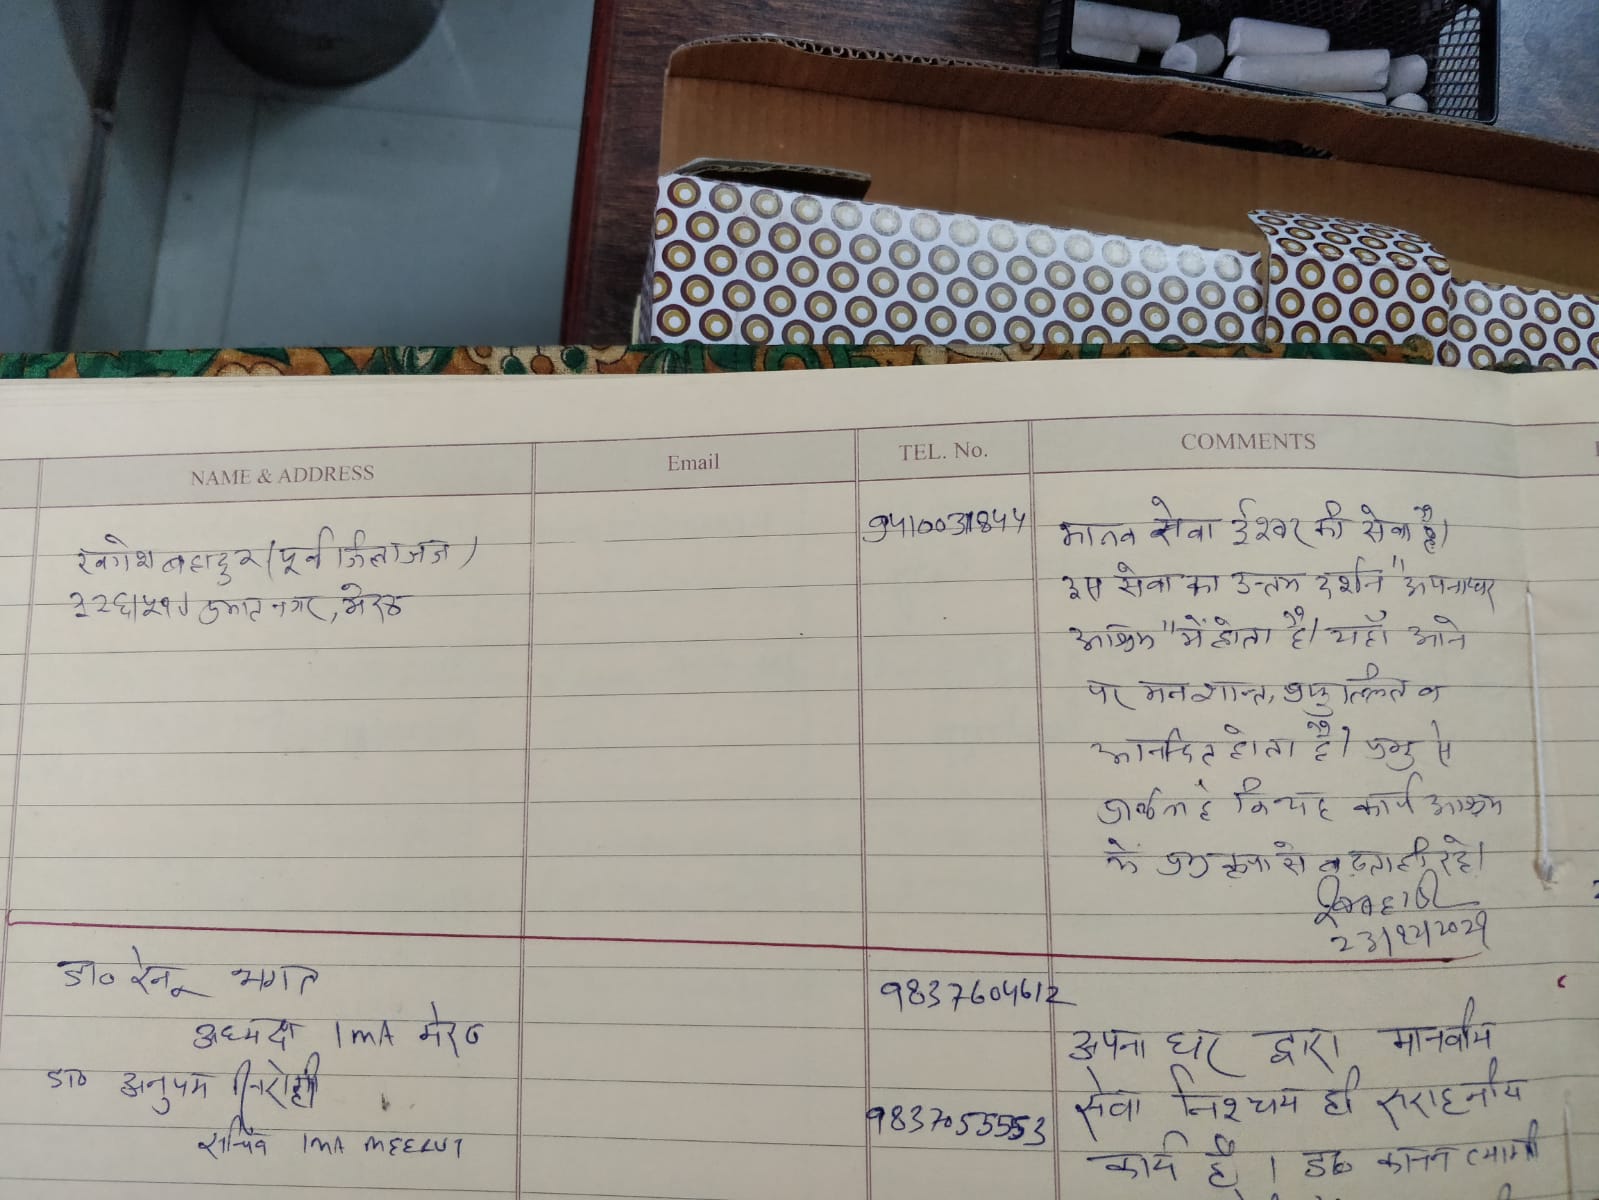 NAME & ADDRESS
Email
TEL. No.
COMMENTS
बहादुर (पूर्व जिला जज)
नगर, मेरठ
मानव सेवा ईश्वर की सेवा है।
इस सेवा का उत्तम दर्शन "अपनाघर
आश्रम" में होता है। यहाँ आने
पर मन शान्त, व
आनन्दित होता है। प्रभु से
प्रार्थना है कि यह कार्य आश्रम
में प्रभु कृपा से बढ़ता ही रहे।
डा० रेनू भगत
अध्यक्ष IMA मेरठ
9837604612
डा० अनुपम सिरोही
सचिव IMA MEERUT
9837055553
अपना घर द्वारा मानवीय
सेवा निश्चय ही सराहनीय
कार्य है। डा०